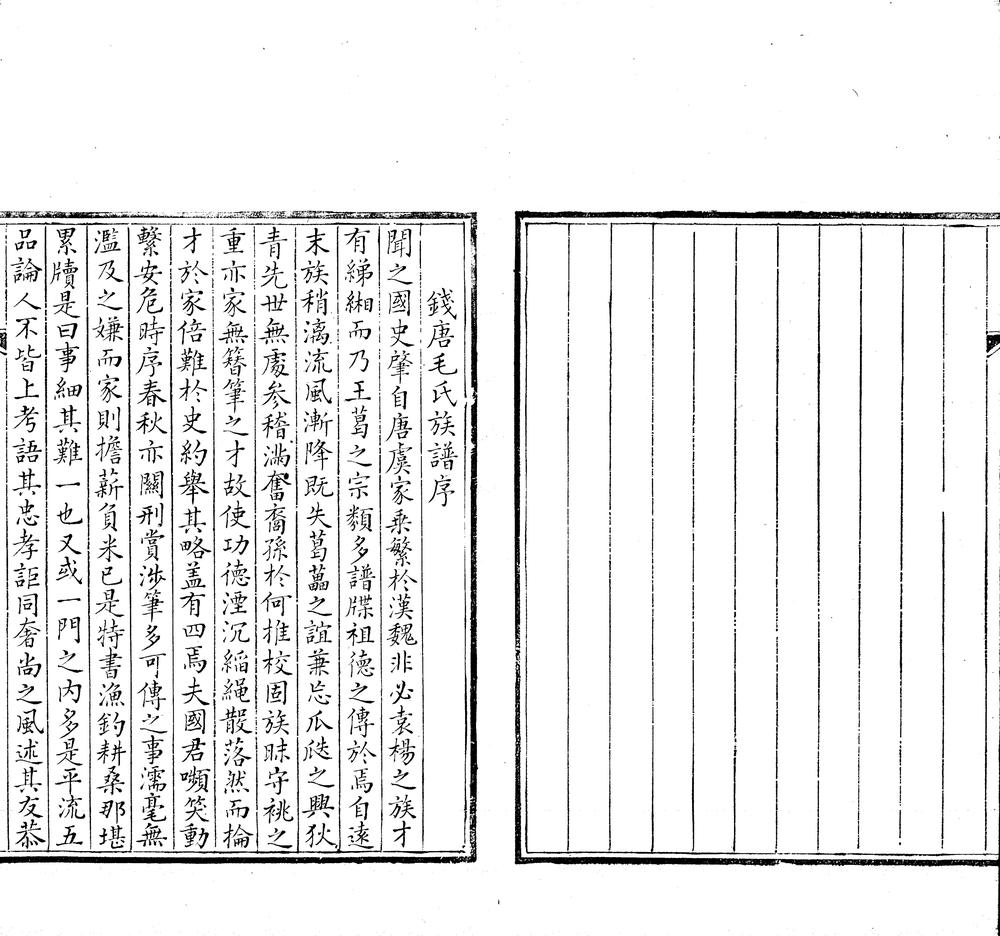 錢唐毛氏族譜序
聞之國史肇自唐虞家乗繁於漢魏非必袁楊之族才
有綈緗而乃王葛之宗纇多譜牒祖德之傳於焉自遠
末族稍漓流風漸降既失葛藟之誼兼忘瓜瓞之興狄
青先世無處参稽滿奮裔孫於何推校固族昧守祧之
重亦家無簪筆之才故使功德湮沉縚繩散落然而掄
才於家倍難於史約舉其略盖有四焉夫國君嚬笑動
繫安危時序春秋亦關刑賞涉筆多可傳之事濡毫無
濫及之嫌而家則擔薪負米已是特書漁釣耕桑那堪
累牘是曰事細其難一也又或一門之内多是平流五
品論人不皆上考語其忠孝詎同奢尚之風述其友恭